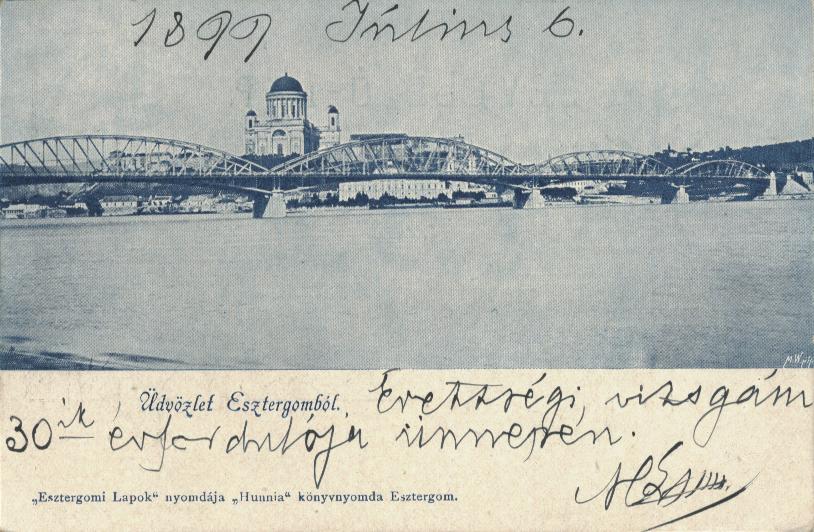 1899 Július 6.
Üdvözlet Esztergomból. Érettségi vizsgám
30ik évfordulója ünnepén.
„Esztergomi Lapok“ nyomdája „Hunnia“ könyvnyomda Esztergom.